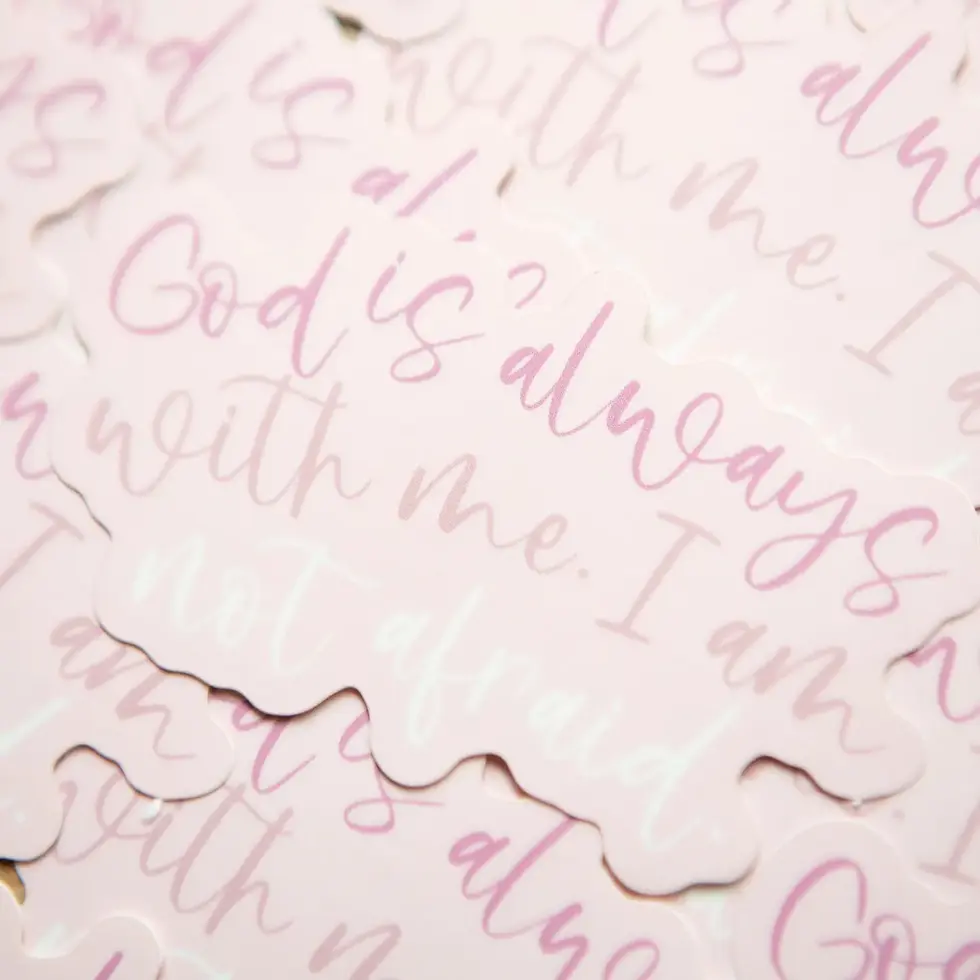 God is always
with me. I am
not afraid.